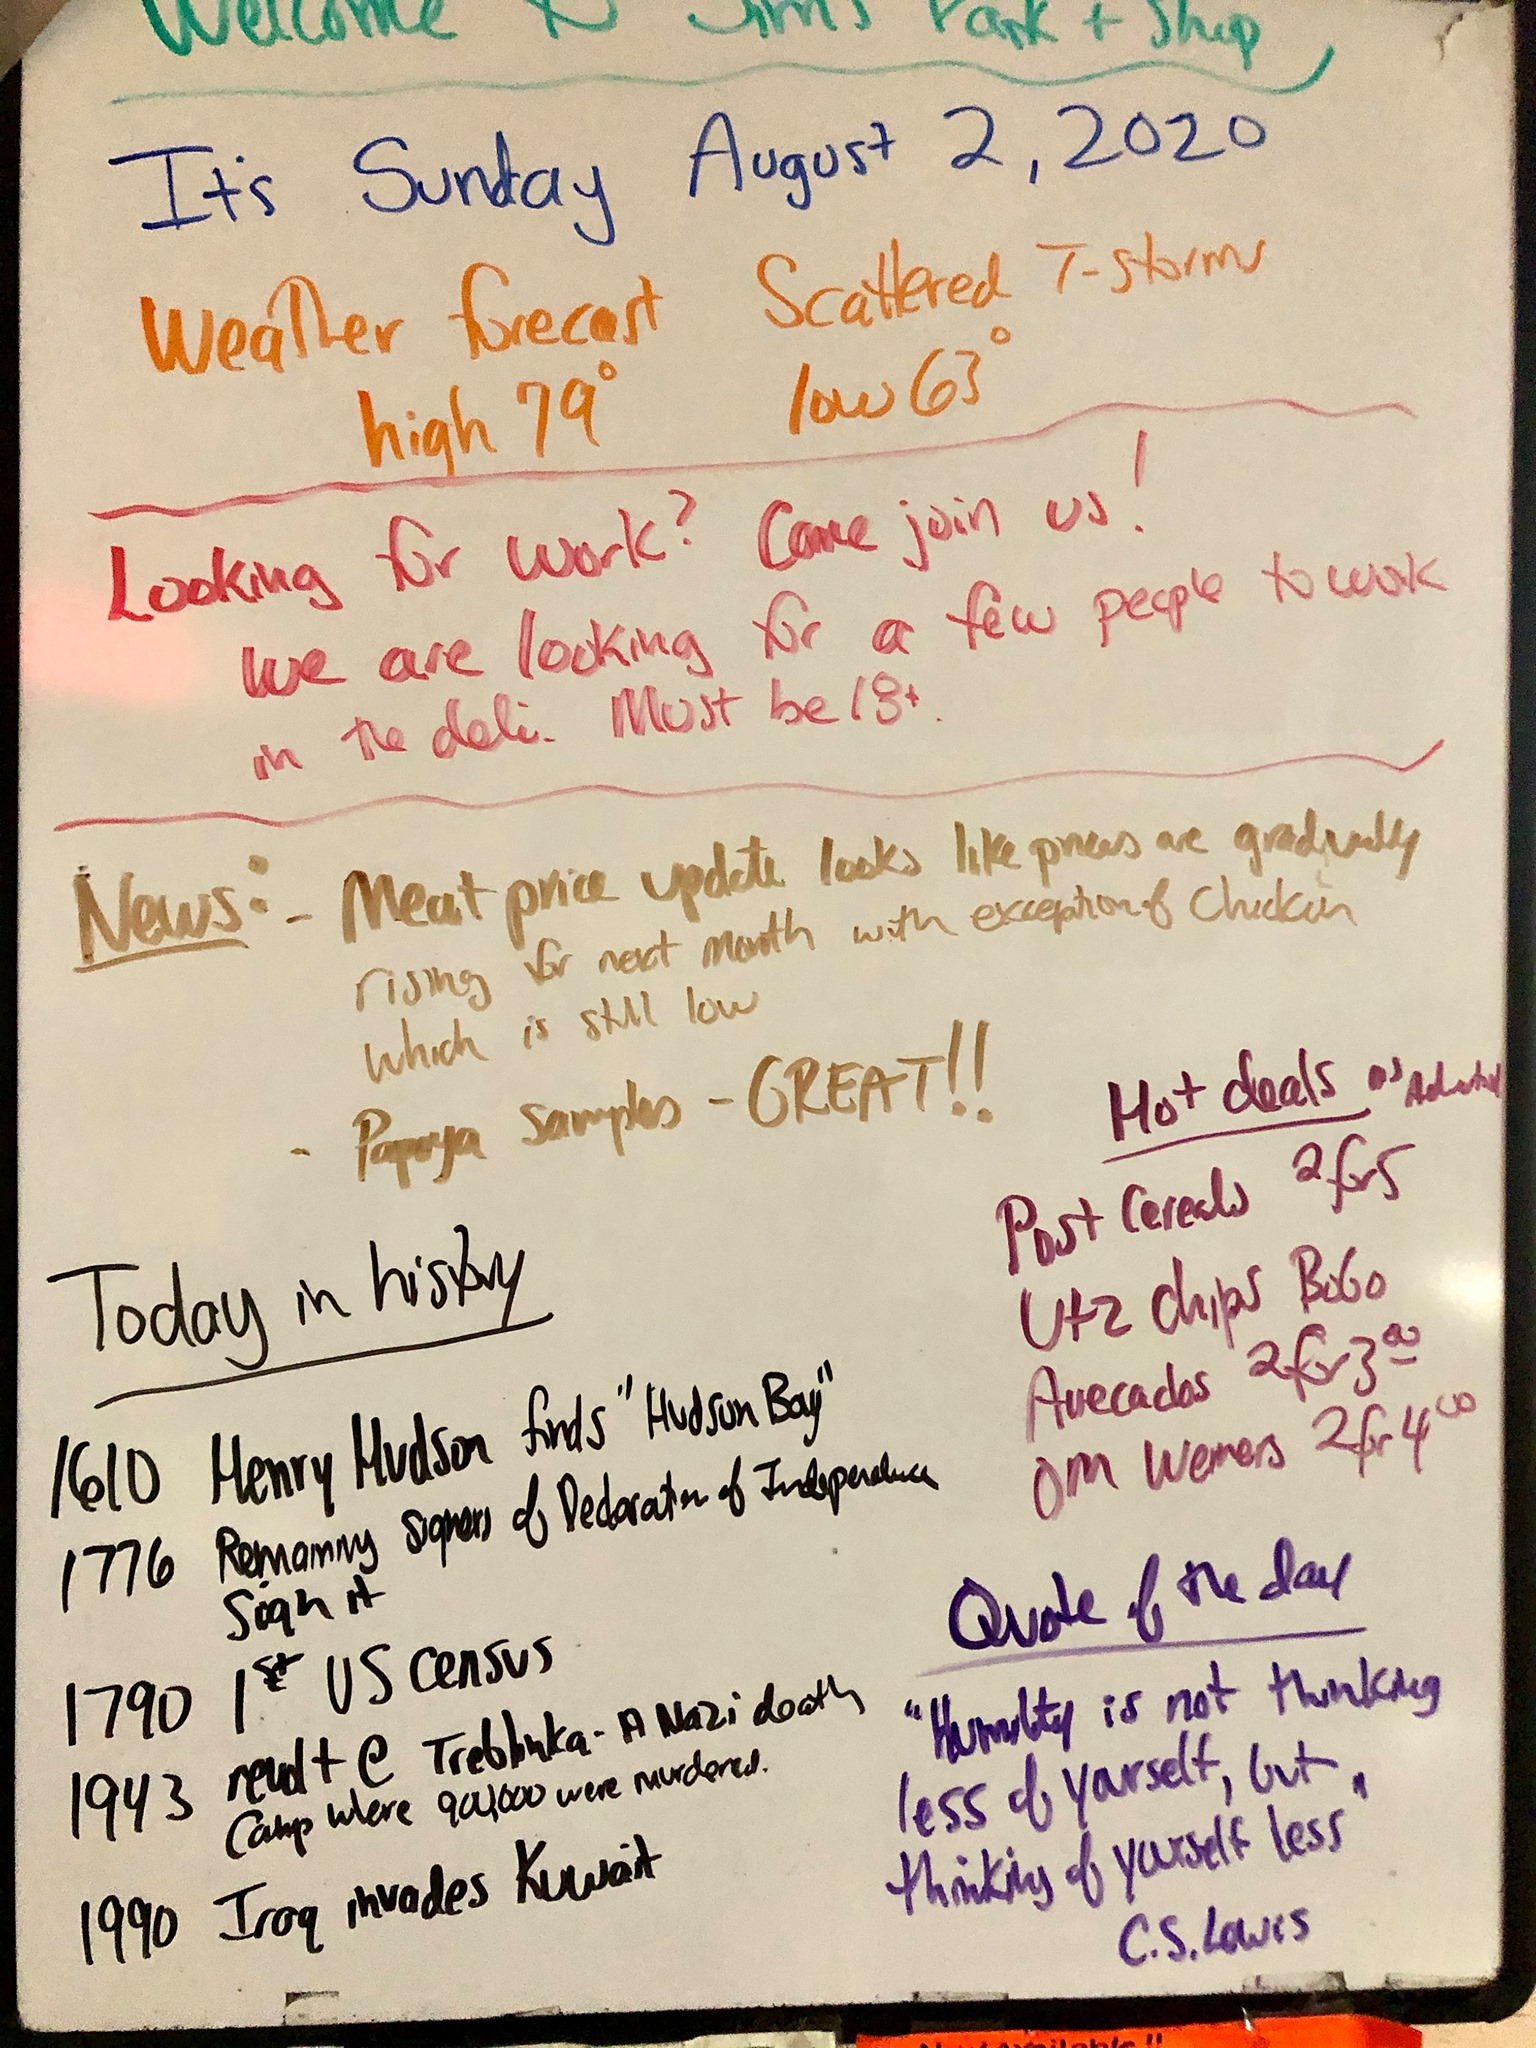 Welcome to Jim's Park + Shop
It's Sunday August 2, 2020
Weather forecast Scattered T-storms
high 79° low 63°
Looking for work? Come join us!
We are looking for a few people to work
in the deli. Must be 18+.
News: - Meat price update looks like prices are gradually
rising for next month with exception of Chicken
which is still low
- Papaya samples - GREAT!!
Hot deals as Advertised
Post Cereals 2 for 5
Utz chips BoGo
Avecados 2 for 3 00
OM Weiners 2 for 4 00
Today in history
1610 Henry Hudson finds "Hudson Bay"
1776 Remaining signers of Declaration of Independence
Sign it
1790 1st US census
1943 revolt @ Treblinka - A Nazi death
Camp where 900,000 were murdered.
1990 Iraq invades Kuwait
Quote of the day
"Humility is not thinking
less of yourself, but
thinking of yourself less"
C.S. Lewis